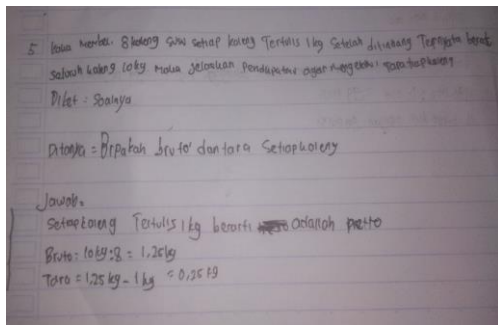 5. kaka membeli 8 kaleng susu setiap kaleng Tertulis 1 kg setelah ditimbang Ternyata berat
seluruh kaleng 10kg maka jelaskan pendapatan agar mengetahui tara tiap kaleng
Diket = Soalnya
Ditanya = Brpakah bruto dan tara Setiap kaleng
Jawab.
Setiap kaleng Tertulis 1 kg berarti adalah netto
Bruto = 10 kg : 8 = 1,25 kg
Tara = 1,25 kg - 1 kg = 0,25 kg